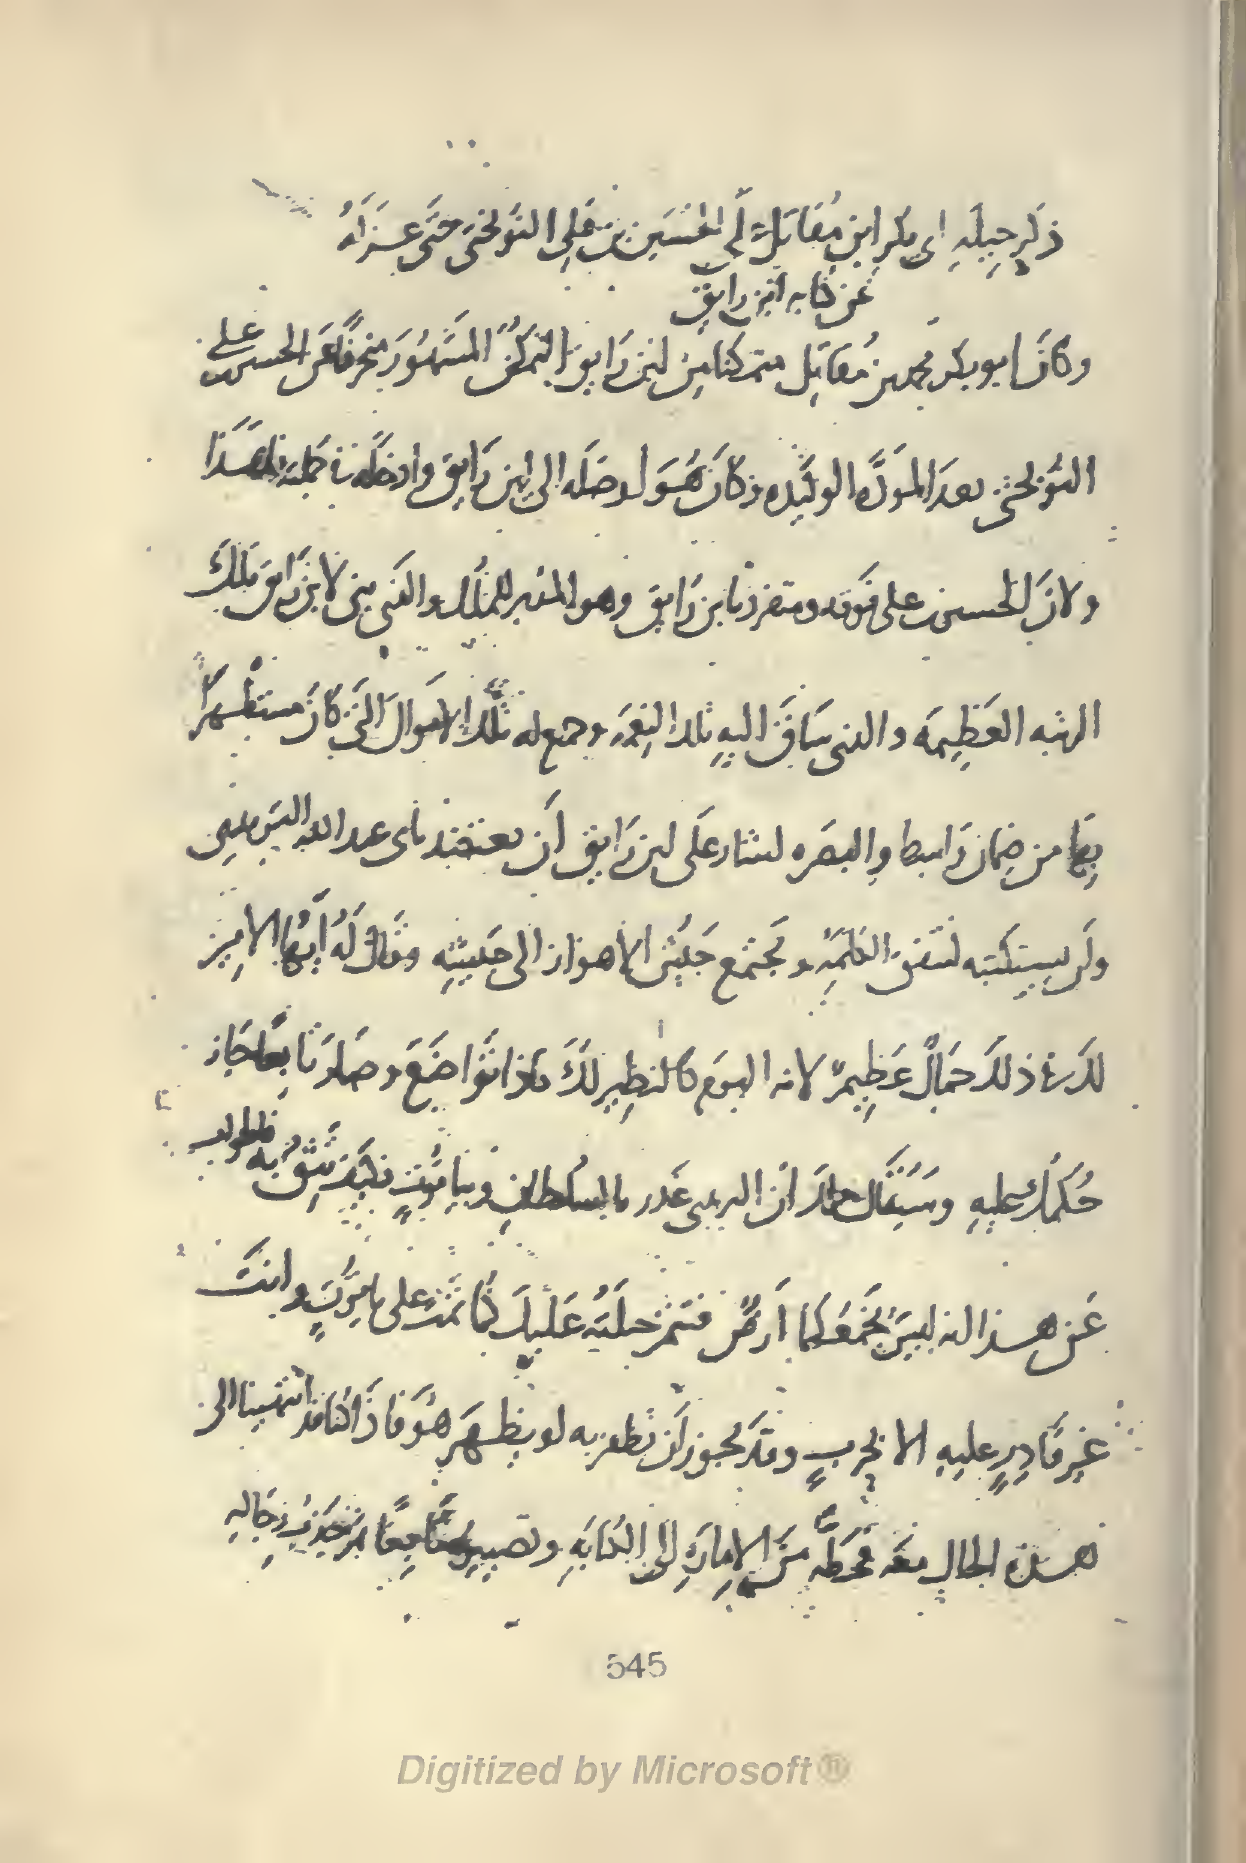 ذكر حيلة ابي بكر ابن مقاتل على الحسين بن علي النوبختي حتى عزله
عن كتابة ابن رايق
وكان ابو بكر محمد بن مقاتل متمكنا من ابن رايق التمكن المشهور منحرفا عن الحسين بن علي
النوبختي بعد المودة الوكيده وكان هو اوصله الى ابن رايق وادخله في جملته
ولان الحسين علي فوقه ومتفرد بابن رايق وهو المدبر للملك والذي بنى لابن رايق تلك
الرتبه العظيمه والذي ساق اليه تلك النعمة وجمع له تلك الاموال التي كان مستظهرا
بها من ضمان واسط والبصره اشار على ابن رايق ان يعتضد بابي عبد الله البريدي
وان يستكتبه لتتفق الكلمة وتجتمع جيش الاهواز الى جيشه وقال له ايها الامير
لك في ذلك جمال عظيم لانه اليوم كالنظير لك فاذا تواضع وصار تابعا جاز
حكمك عليه وسيقال ان البريدي غدر بالسلطان وبياقوت فكيف نثق به
عن هذا انه ليس يجمعكما ارض فتتم حيلته عليك كما تمت على ياقوت وانت
غير قادر عليه الا بحرب وقد يجوز ان تظفر به او يظفر هو فاذا انتهينا الى
هذه الحال معه فحطه من الامارة الى الكتابة وتصييره تابعا
545
Digitized by Microsoft®